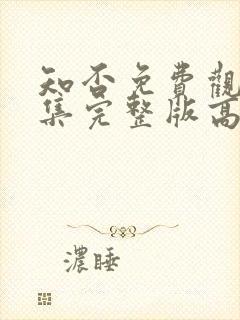 知否免費觀
集完整版高
濃睡